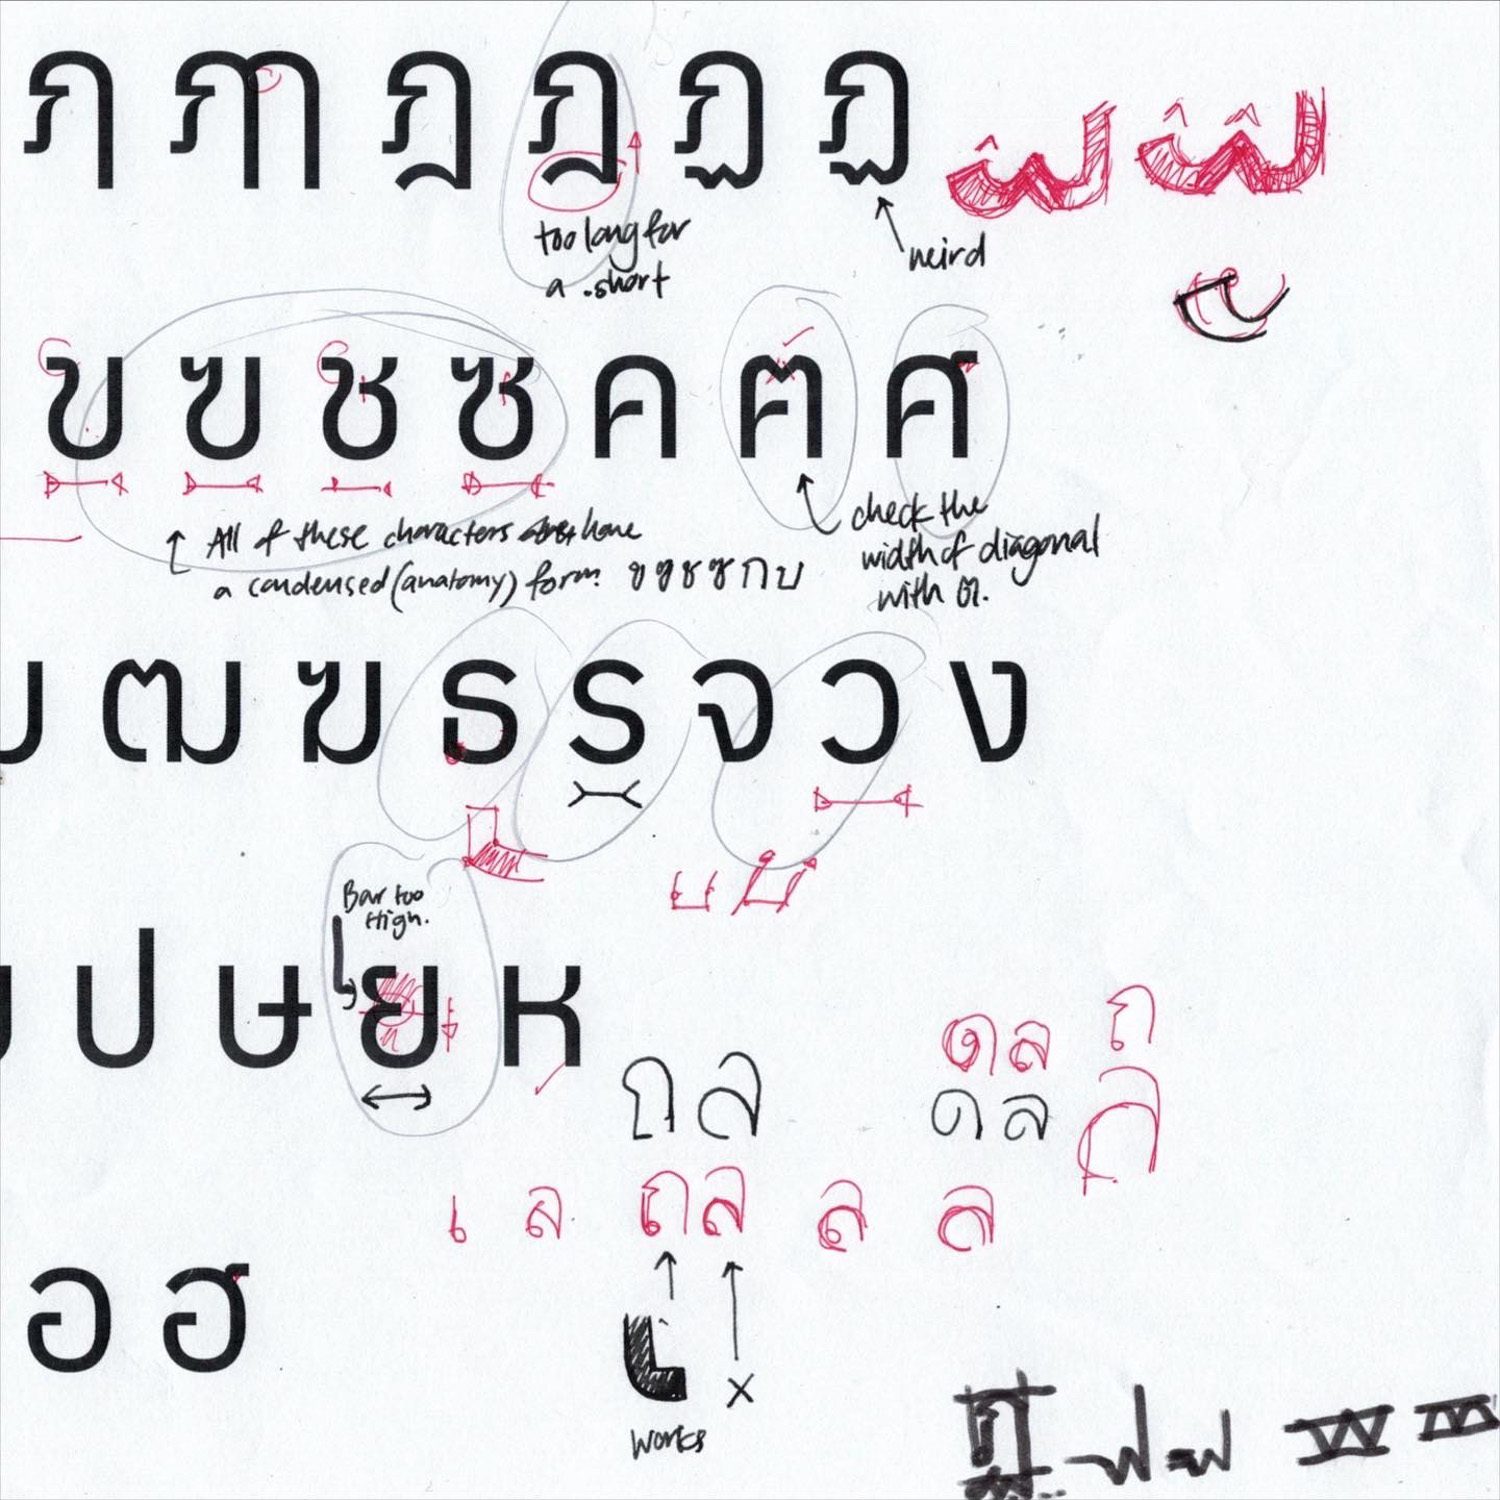 ภ ฦ ฎ ฎ ฏ ฏ
too long for
a short
weird
ข ฃ ช ซ ค ฅ ศ
All of these characters have
a condensed (anatomy) form. ข ฃ ช ซ ก บ
check the
width of diagonal
with ฅ.
ฒ ฆ ธ ร จ ว ง
Bar too
High.
ป ษ ย ห
ถ ล
ด ล ถ
ด ล
เ ล ถ ล ล ล
อ ฮ
x
works